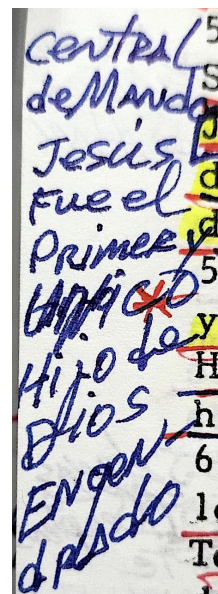 CENTRAL
de MANDO
Jesús
Fue el
PRIMER y
UNICO
Hijo de
DIOS
ENGEN
dRADO
5
S
d
d
5
y
H
h
6
1
T